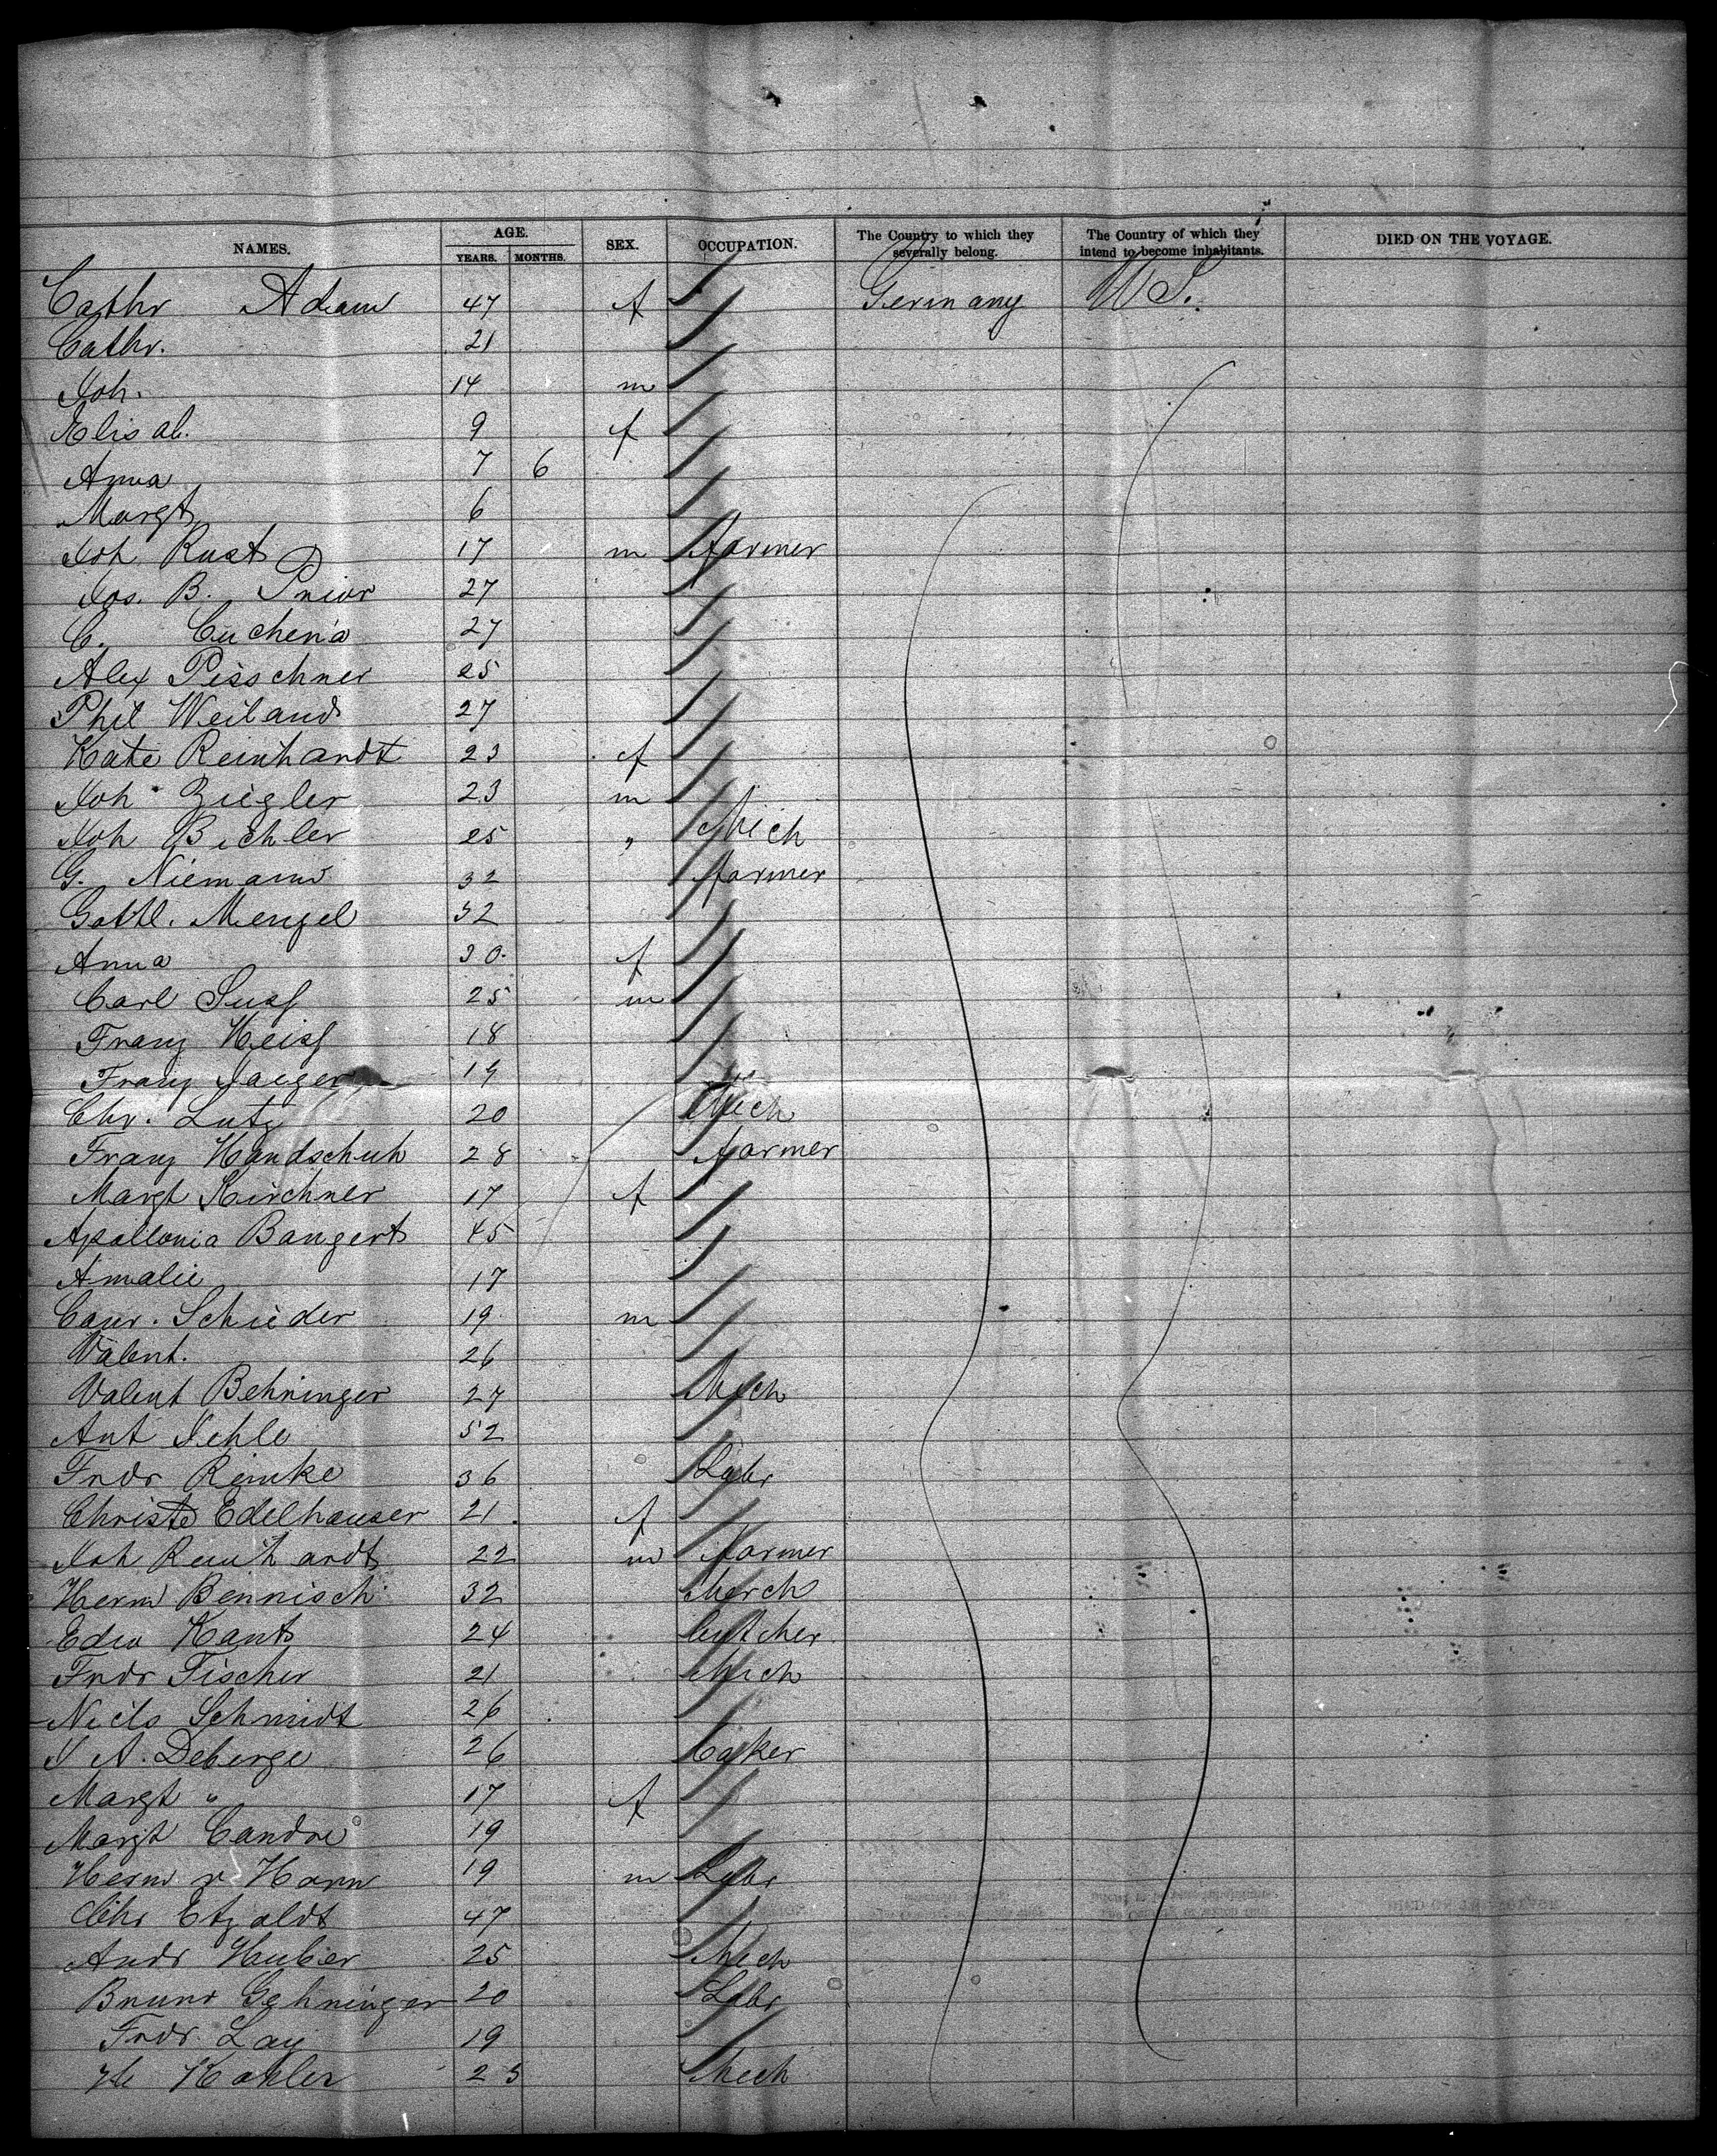 NAMES. AGE. SEX. OCCUPATION. The Country to which they severally belong. The Country of which they intend to become inhabitants. DIED ON THE VOYAGE.
YEARS. MONTHS.
Cathr Adam 47 f Germany U S.
Cathr. 21
Joh. 14 m
Elisab. 9 f
Anna 7 6
Margt 6
Joh Rust 17 m farmer
Jos. B. Prior 27
C. 27
Alex Pisschner 25
Phil Weiland 27
Kate Reinhardt 23 f
Joh Ziegler 23 m
Joh Bichler 25 " Mech
G. Niemann 32 farmer
Gottl. Mengel 32
Anna 30 f
Carl Suss 25 m
Franz Heiss 18
Franz Jaeger 19
Chr. Lutz 20 Mech
Franz Handschuh 28 farmer
Margt Kirchner 17 f
Apollonia Bangert 45
Amalie 17
Conr. Schieder 19 m
Valent. 26
Valent Behringer 27 Mech
Ant Jehle 52
Frdr Rimke 36 Labr
Christe Edelhauser 21 f
Joh Reinhardt 22 m farmer
Herm Bennisch 32 Merch
Edw Kant 24 butcher
Frdr Fischer 21 Mech
Niels Schmidt 26
J A. Deberge 26 baker
Margt " 17 f
Margt 19
Herm v Horn 19 m Labr
Chr Etzoldt 47
Andr Huber 25 Mech
Bruno Gehringer 20 Labr
Frdr. Lay 19
Kohler 23 Mech